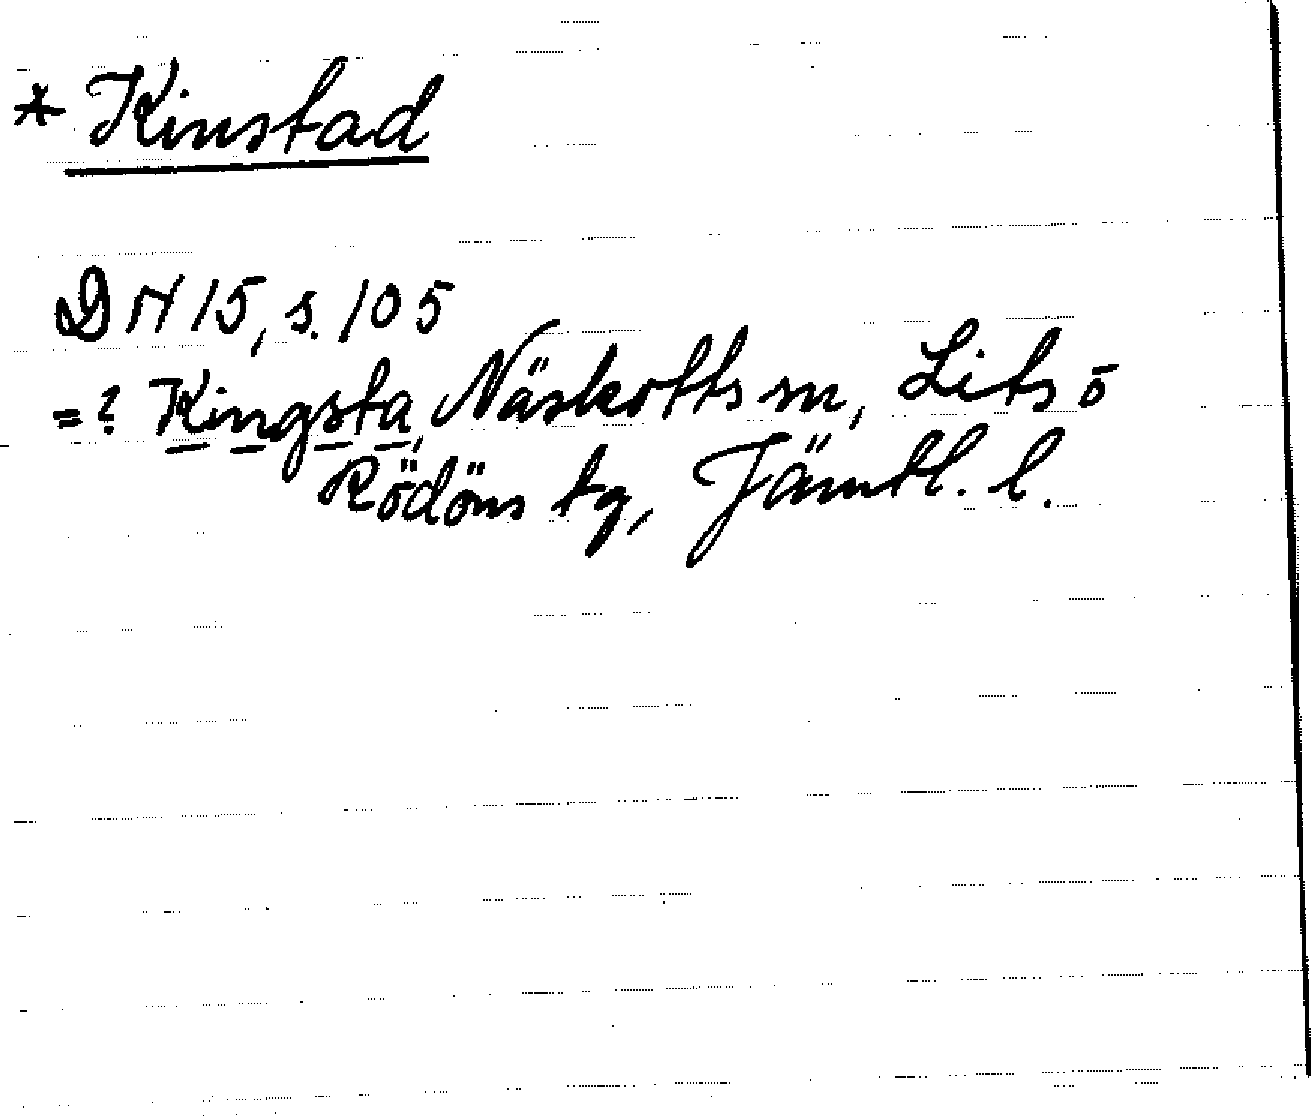 * Kinstad
DN 15, s. 105
=? Kingsta, Näskotts sn, Lits o
Rödöns tg, Jämtl. l.